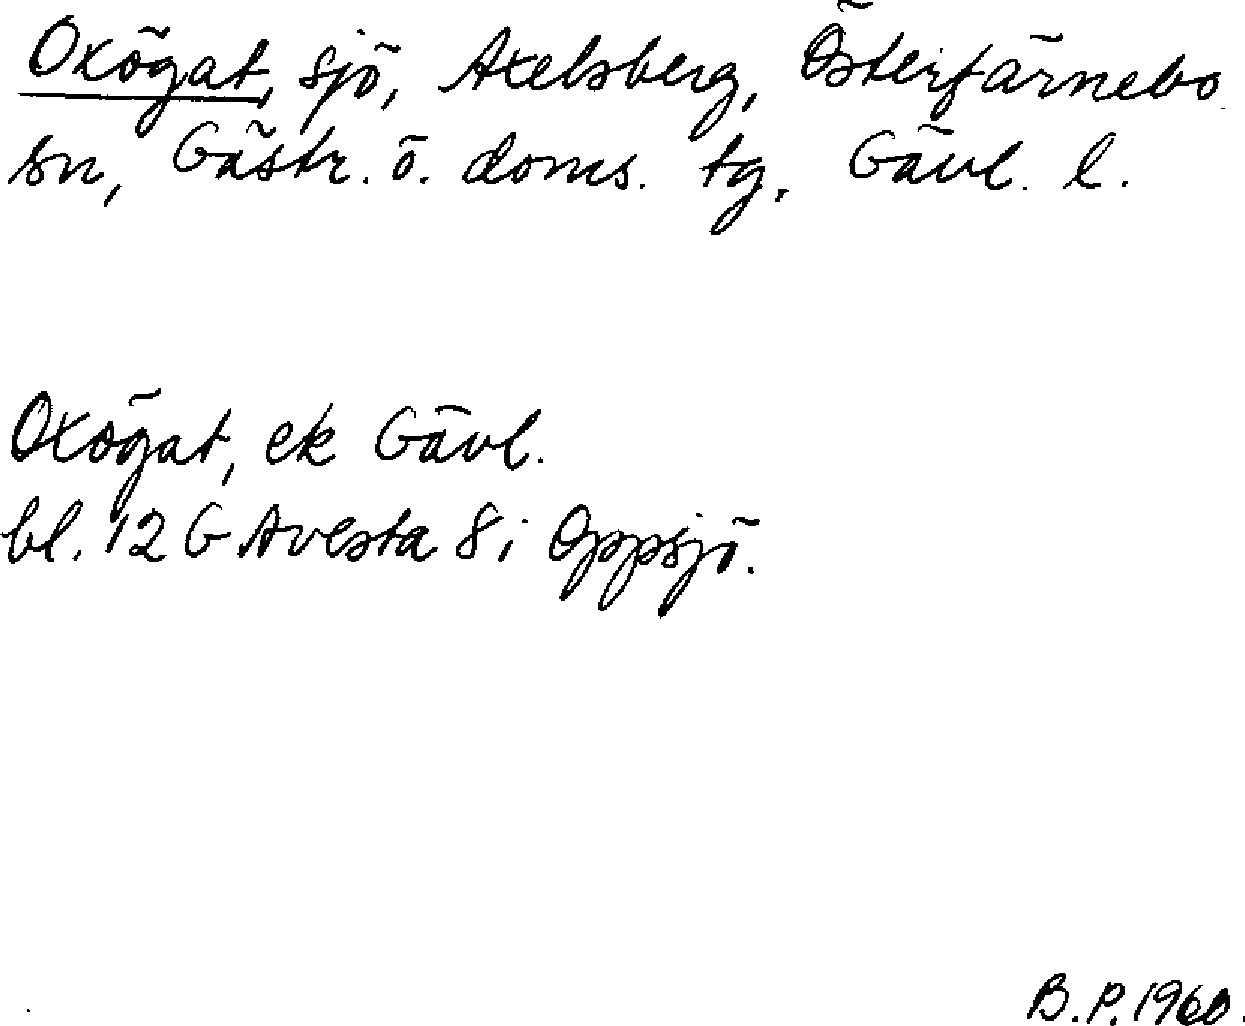 Oxögat, sjö, Axelsberg, Österfärnebo
sn, Gästr. ö. doms. tg, Gävl. l.
Oxögat, ek Gävl.
bl. 12 G Avesta 8 i Oppsjö.
B.P. 1960.